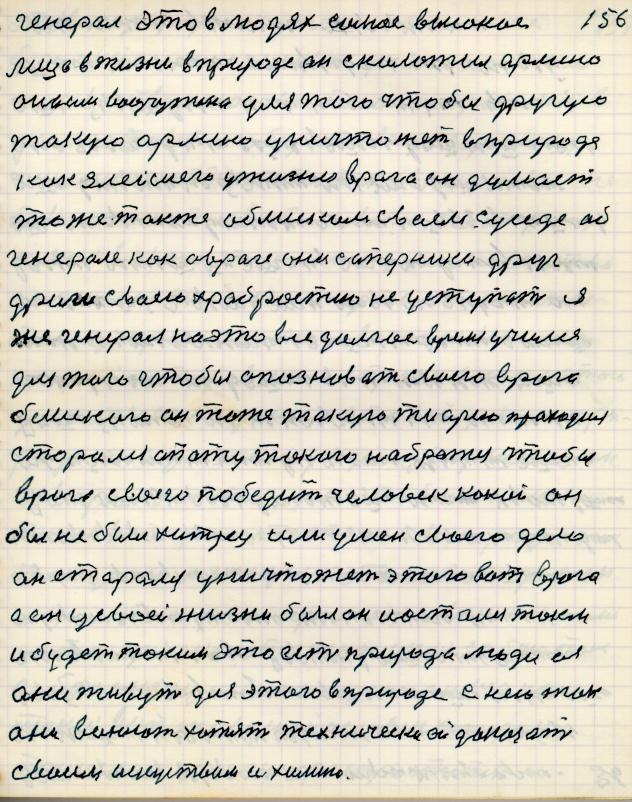 генерал это в людях самое высокое 156
лицо в жизни в природе он сколотил армию
он
для того чтобы другую
такую армию уничтожет в природе
как злейшего у жизни врага он думает
тоже также о близком своем суседе об
генерале как о враге они саперники друг
други своею храбростию не уступат а
же генерал на это все долгое время учился
для того чтобы опозноват своего врага
близкого он тоже такую тиарею праходил
старался опыту такого набратся чтобы
врага своего победит человек какой он
бы не был хитрец или умен своего дела
он старался уничтожет этого вот врага
а он у своей жизни был он и остался таким
и будет таким это ест природа люди а
они живут для этого в природе с нею так
они воюют хотят технически ей доказат
своим искуством и химию.